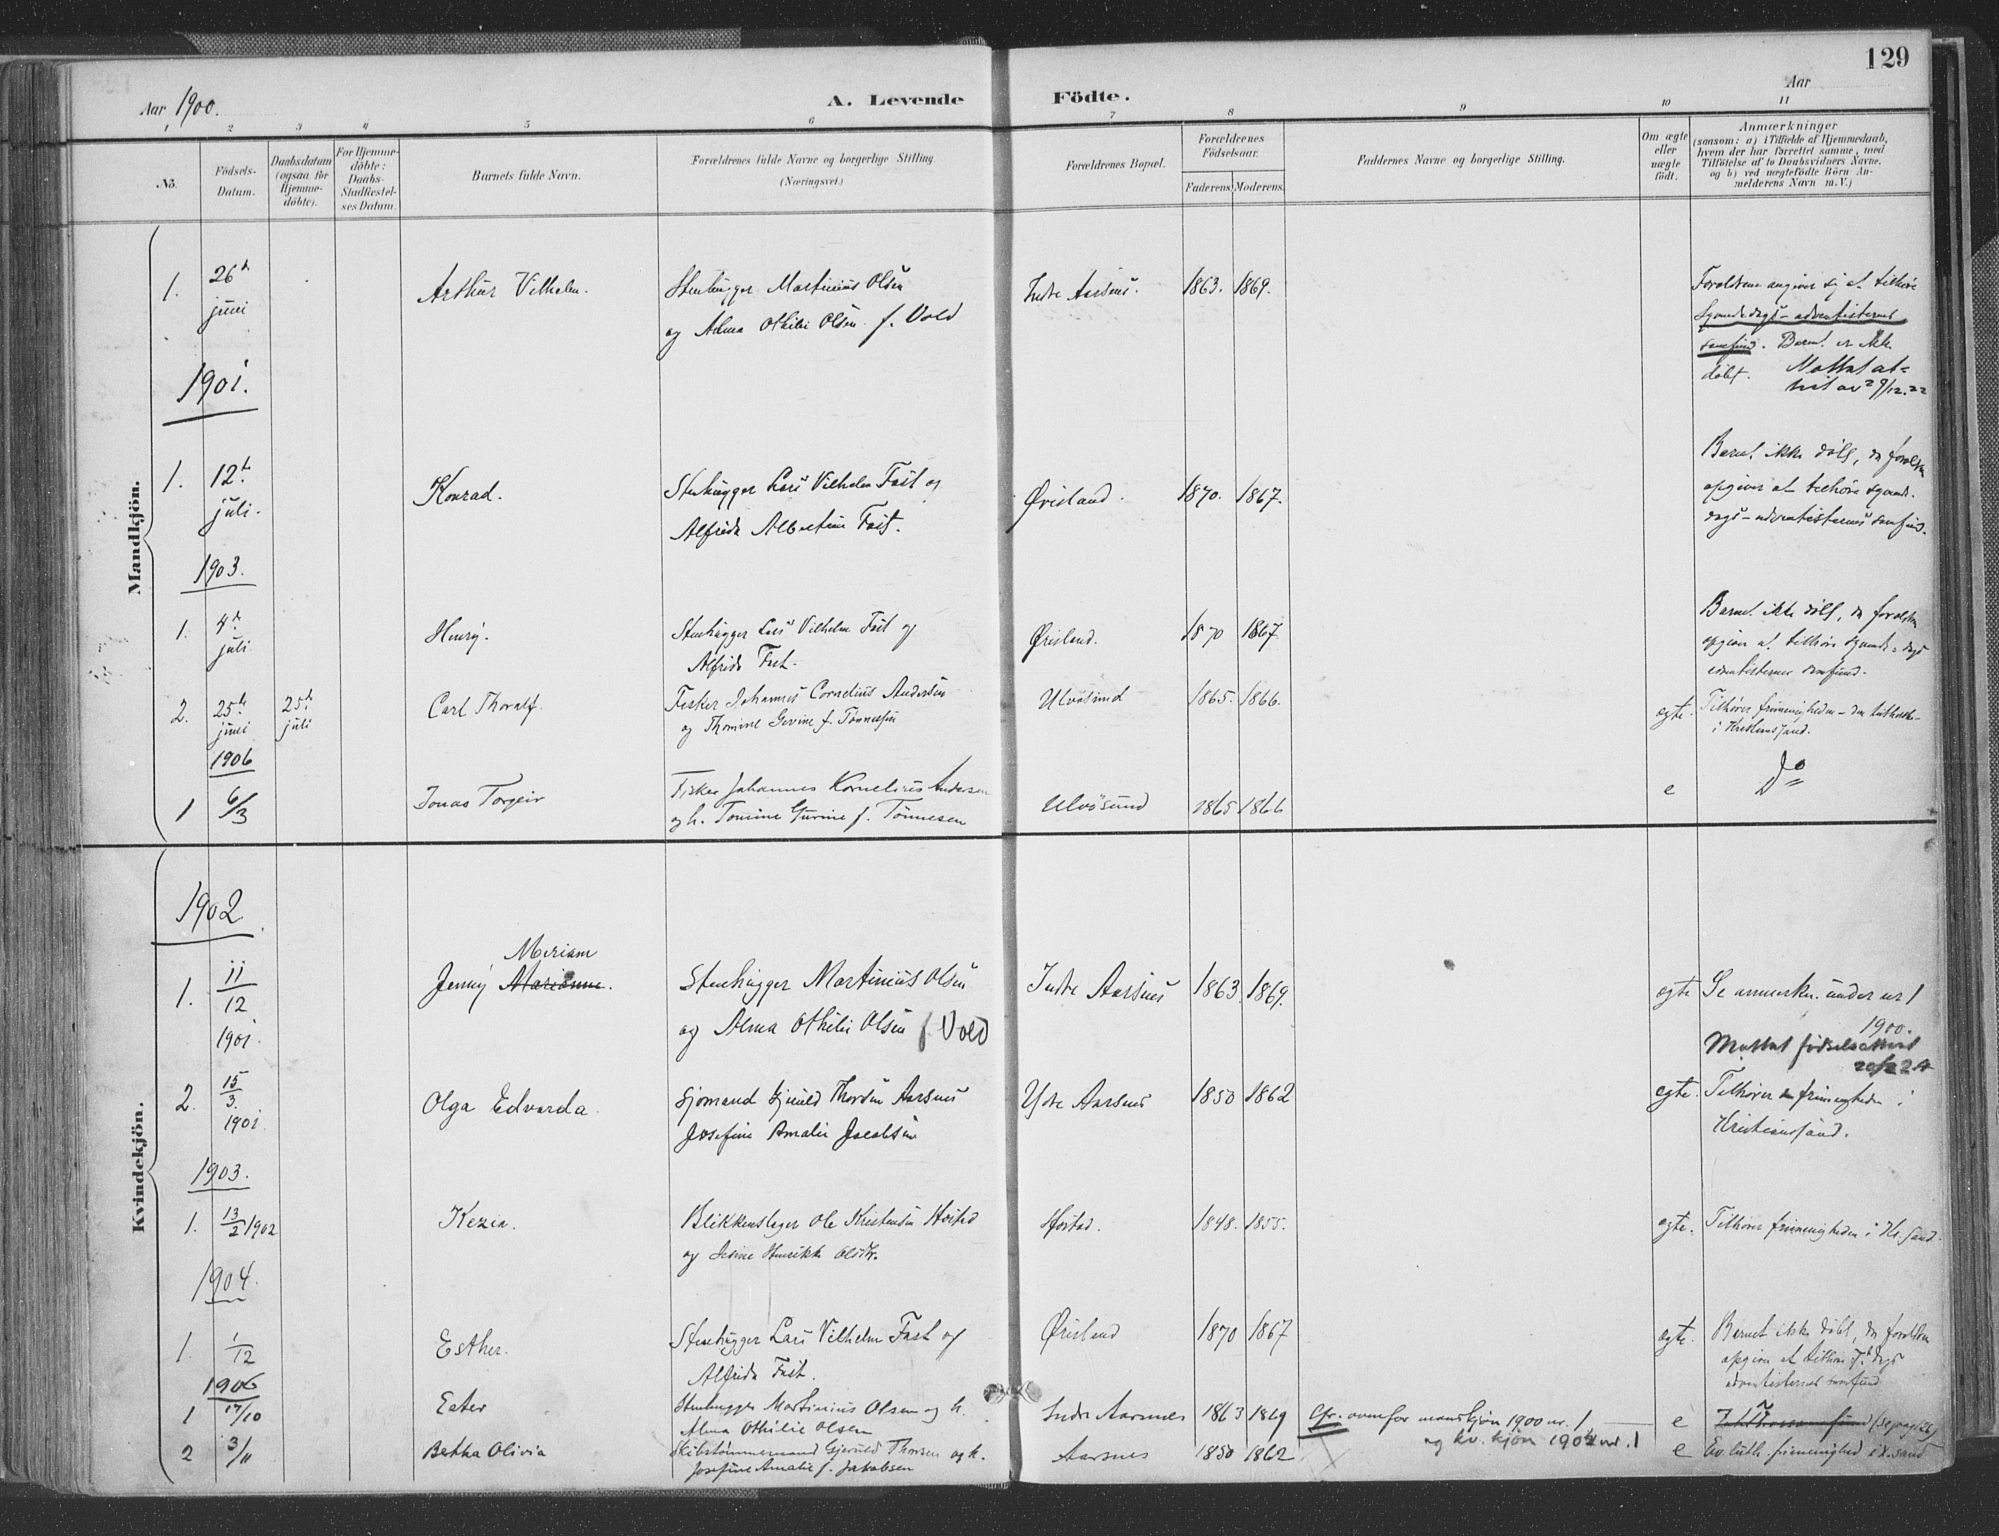 129
Aar 1900.
A. Levende Födte.
Aar
1 2 3 4 5 6 7 8 9 10 11
No.
Födsels-Datum.
Daabsdatum (ogsaa for Hjemme-döbte).
For Hjemme-döbte: Daabs-Stadfæstel-ses Datum.
Barnets fulde Navn.
Forældrenes fulde Navne og borgerlige Stilling.
(Næringsvei.)
Forældrenes Bopæl.
Forældrenes Födselsaar.
Faderens. Moderens.
Faddernes Navne og borgerlige Stilling.
Om ægte eller uægte födt.
Anmærkninger
(saasom: a) i Tilfælde af Hjemmedaab,
hvem der har forrettet samme, med
Tilföielse af to Daabsvidners Navne.
og b) ved uægtefödte Börn An-
melderens Navn m. V.)
Mandkjön.
1. 26de juni
Arthur Vilhelm.
Stenhugger Martinius Olsen
og Alma Othilie Olsen f. Vold
Indre Aarsnes. 1863. 1869.
Forældrene angiver sig at tilhøre
Syvendedags-adventisternes
samfund. Barnet er ikke
døbt.
Mottat at-
test av
1901.
1. 12te juli.
Konrad.
Stenhugger Lars Vilhelm Fast og
Alfrida Albertine Fast.
Øvisland. 1870. 1867.
Barnet ikke døbt, da foreldrene
opgiver at tilhøre syvende-
dags-adventisternes samfund.
1903.
1. 4de juli
Henry.
Stenhugger Lars Vilhelm Fast og
Alfrida Fast.
Øvisland. 1870 1867.
Barnet ikke døbt, da foreldrene
opgiver at tilhøre syvende-dags
adventisternes samfund.
2. 25de juni 25de juli
Carl Thoralf.
Fisker Johannes Cornelius Andersen
og Thomine Gurine f. Tønnessen
Ulvøsund 1865. 1866. egte.
Tilhører frimenigheden - den lutherske -
i Kristianssand.
1906
1 6/3
Jonas Torgeir
Fisker Johannes Kornelius Andersen
og h. Tomine Gurine f. Tönnesen
Ulvösund 1865 1866 e Do
Kvindekjön.
1902
Miriam
1. 11/12 1901.
Jenny Marianne.
Stenhugger Martinius Olsen
og Alma Othilie Olsen f Vold
Indre Aarsnes 1863 1869. egte
Se anmerkn. under nr 1
1900.
Mottat fødselsattest
2. 15/3. 1901
Olga Edvarda.
Sjømand Gjeruld Thorsen Aarsnes
Josefine Amalie Jacobsen
Ydre Aarsnes 1850 1862 egte.
Tilhører den frimenigheden i
Kristianssand.
1903.
1. 13/2 1902
Kezia.
Blikkenslager Ole Kristensen Høstad
og Jesine Henrikke Olsdtr.
Høstad. 1848. 1855. egte.
Tilhører frimenigheden i Kr.sand.
1904.
1. 1/12
Esther.
Stenhugger Lars Vilhelm Fast og
Alfrida Fast.
Øvisland 1870 1867 egte.
Barnet ikke døbt, da foreldrene
opgiver at tilhøre 7de dags
adventisternes samfund
1906
1 17/10
Ester
Stenhugger Martinius Olsen og h.
Alma Othilie Olsen
Indre Aarsnes 1863 1869
Cfr. ovenfor mandkjön 1900 nr. 1
og kv. kjön 1902 nr. 1
e
2 3/11
Betha Olivia
Skibstömmermand Gjeruld Thorsen og h.
Josefine Amalie f. Jakobsen
Aarsnes 1850 1862 e
Ev. luth. frimenighed i K.sand